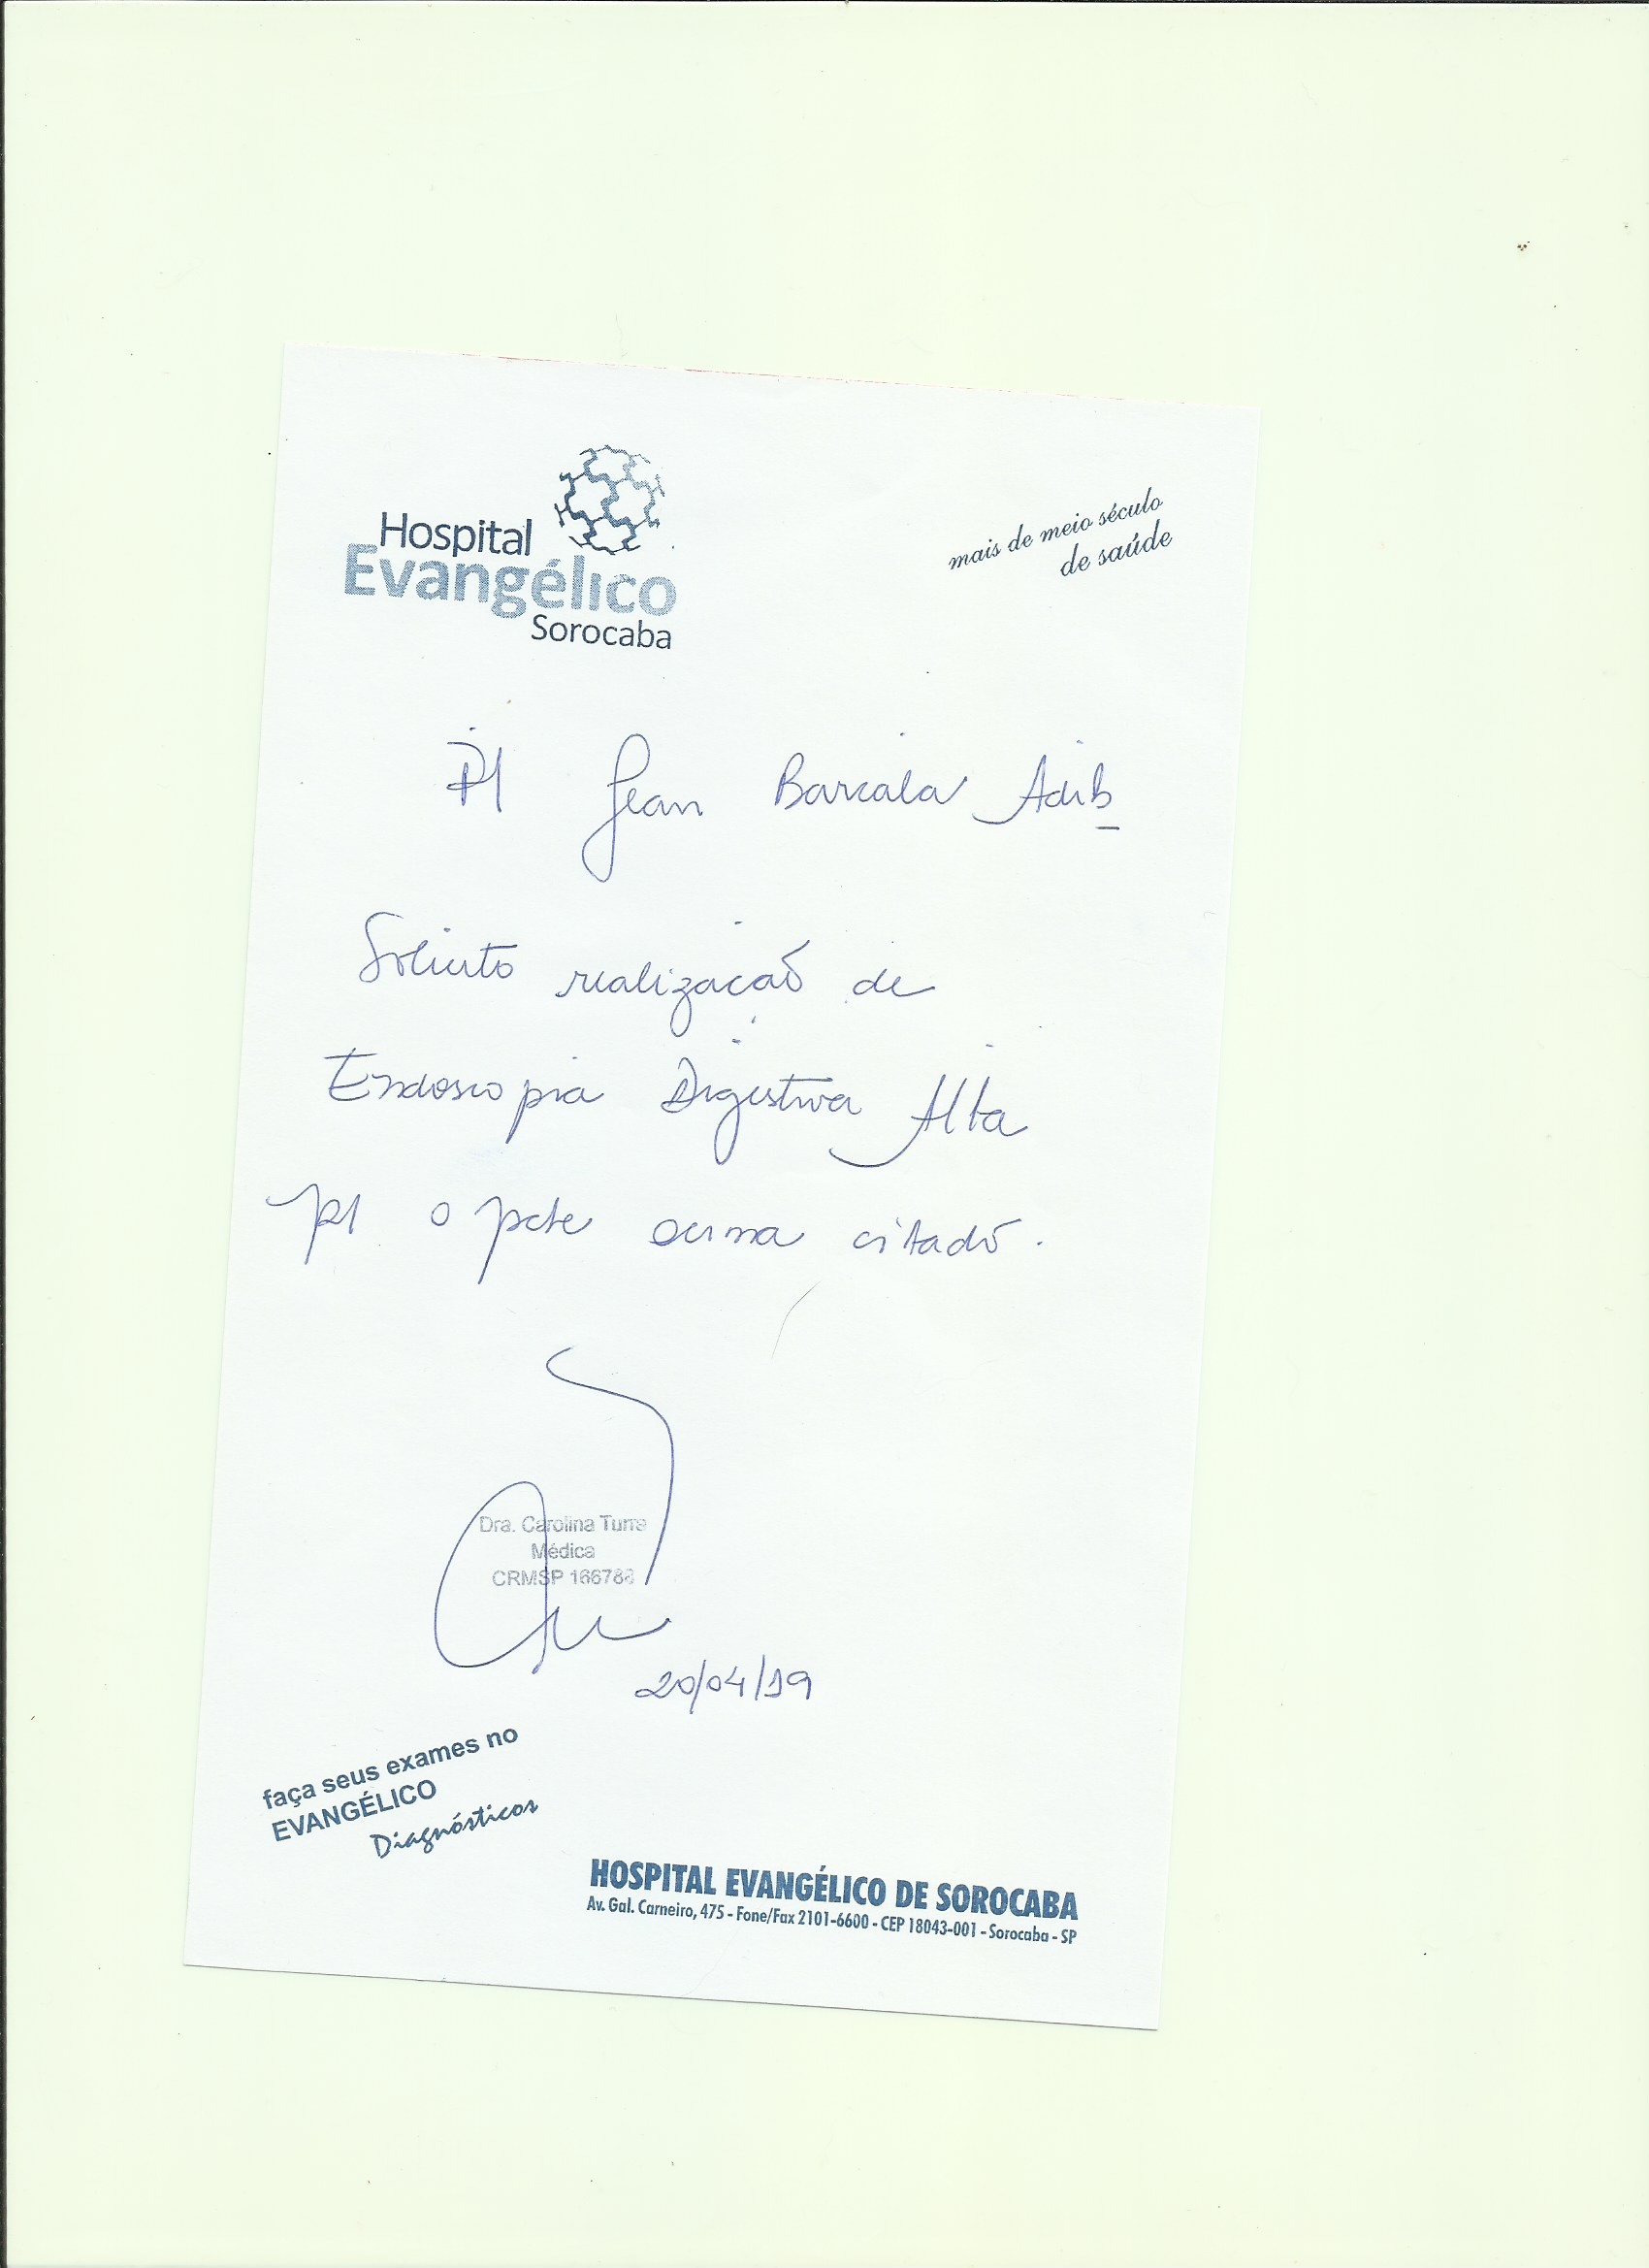 Hospital
Evangélico
Sorocaba
mais de meio século
de saúde
P/ Jean Barcala Adib
Solicito realização de
Endoscopia Digestiva Alta
p/ o pcte acima citado.
Dra. Carolina Turra
Médica
CRMSP 166788
20/04/19
faça seus exames no
EVANGÉLICO
Diagnósticos
HOSPITAL EVANGÉLICO DE SOROCABA
Av. Gal. Carneiro, 475 - Fone/Fax 2101-6600 - CEP 18043-001 - Sorocaba - SP